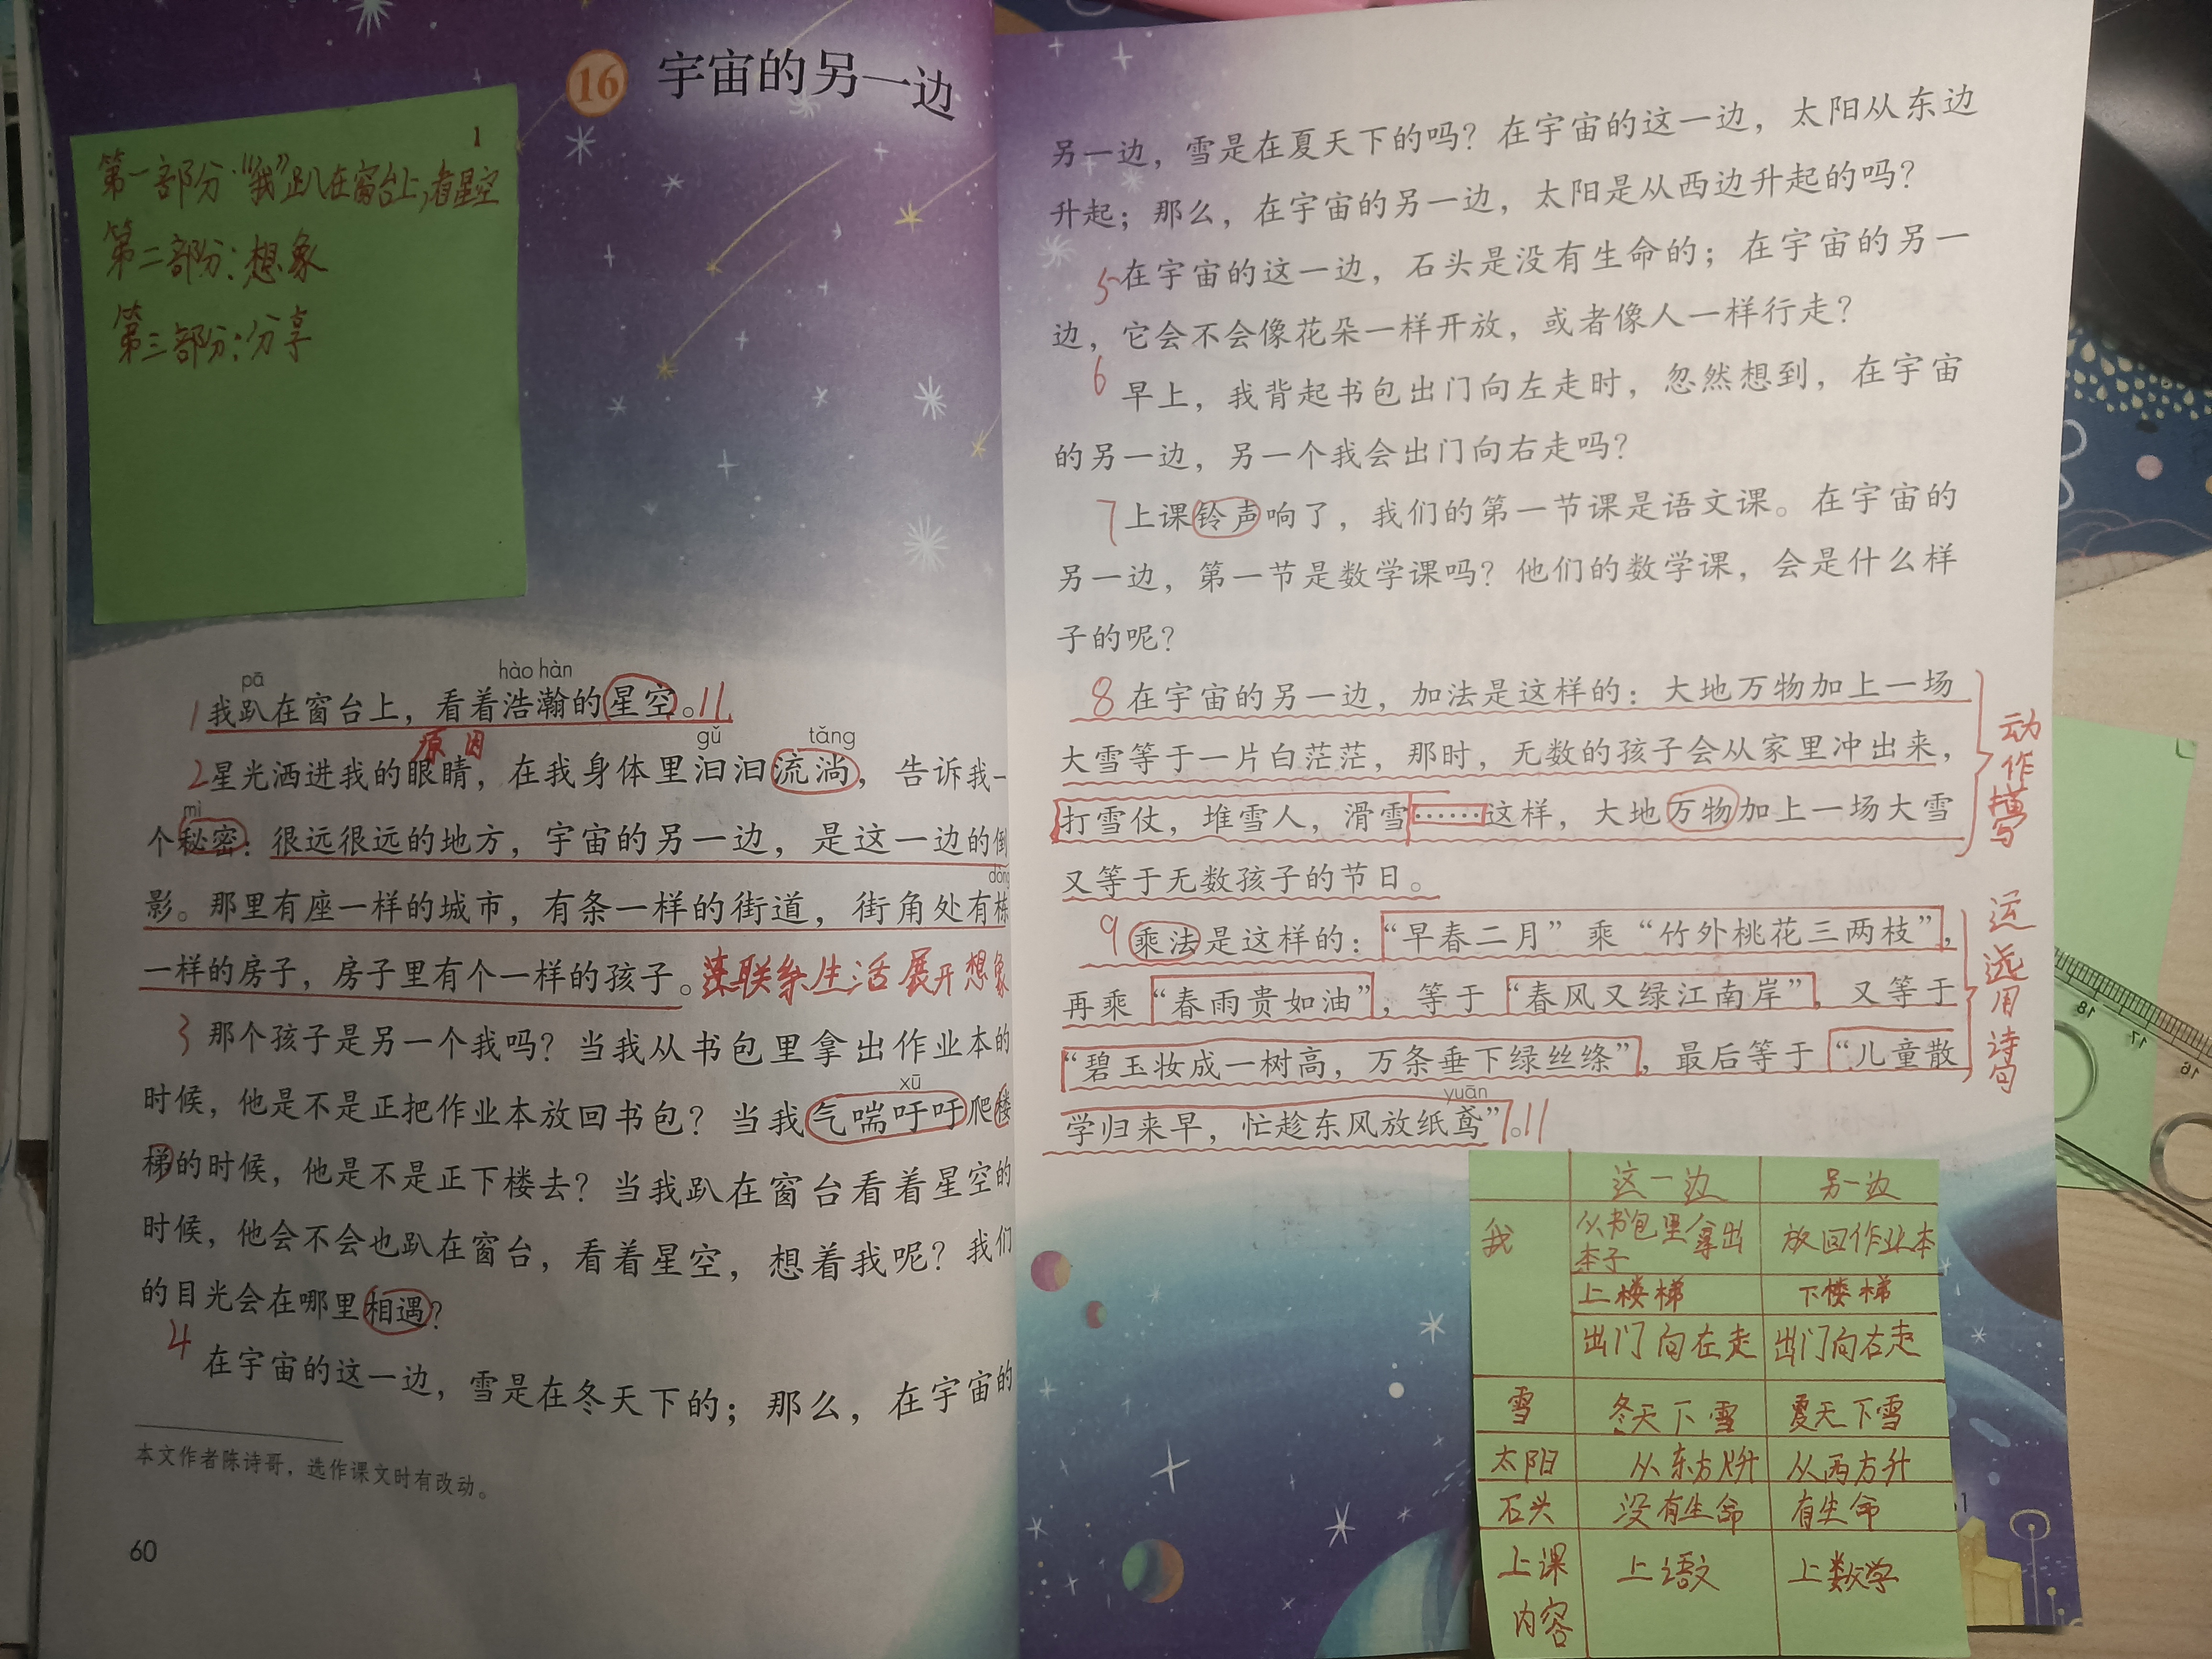 16 宇宙的另一边
1
第一部分:“我”趴在窗台上,看星空
第二部分:想象
第三部分:分享
pā hào hàn
1 我趴在窗台上，看着浩瀚的星空。
原因 gǔ tǎng
2 星光洒进我的眼睛，在我身体里汩汩流淌，告诉我一
mì
个秘密：很远很远的地方，宇宙的另一边，是这一边的倒
dòng
影。那里有座一样的城市，有条一样的街道，街角处有栋
一样的房子，房子里有个一样的孩子。联系生活展开想象
3 那个孩子是另一个我吗？当我从书包里拿出作业本的
xū
时候，他是不是正把作业本放回书包？当我气喘吁吁爬楼
梯的时候，他是不是正下楼去？当我趴在窗台看着星空的
时候，他会不会也趴在窗台，看着星空，想着我呢？我们
的目光会在哪里相遇？
4 在宇宙的这一边，雪是在冬天下的；那么，在宇宙的
本文作者陈诗哥，选作课文时有改动。
60
另一边，雪是在夏天下的吗？在宇宙的这一边，太阳从东边
升起；那么，在宇宙的另一边，太阳是从西边升起的吗？
5 在宇宙的这一边，石头是没有生命的；在宇宙的另一
边，它会不会像花朵一样开放，或者像人一样行走？
6 早上，我背起书包出门向左走时，忽然想到，在宇宙
的另一边，另一个我会出门向右走吗？
7 上课铃声响了，我们的第一节课是语文课。在宇宙的
另一边，第一节是数学课吗？他们的数学课，会是什么样
子的呢？
8 在宇宙的另一边，加法是这样的：大地万物加上一场
大雪等于一片白茫茫，那时，无数的孩子会从家里冲出来，
打雪仗，堆雪人，滑雪……这样，大地万物加上一场大雪
又等于无数孩子的节日。
动作描写
9 乘法是这样的：“早春二月”乘“竹外桃花三两枝”，
再乘“春雨贵如油”，等于“春风又绿江南岸”，又等于
“碧玉妆成一树高，万条垂下绿丝绦”，最后等于“儿童散
yuān
学归来早，忙趁东风放纸鸢”。
运用诗句
这一边 另一边
我 从书包里拿出本子 放回作业本
上楼梯 下楼梯
出门向左走 出门向右走
雪 冬天下雪 夏天下雪
太阳 从东方升 从西方升
石头 没有生命 有生命
上课内容 上语文 上数学
18 17 16